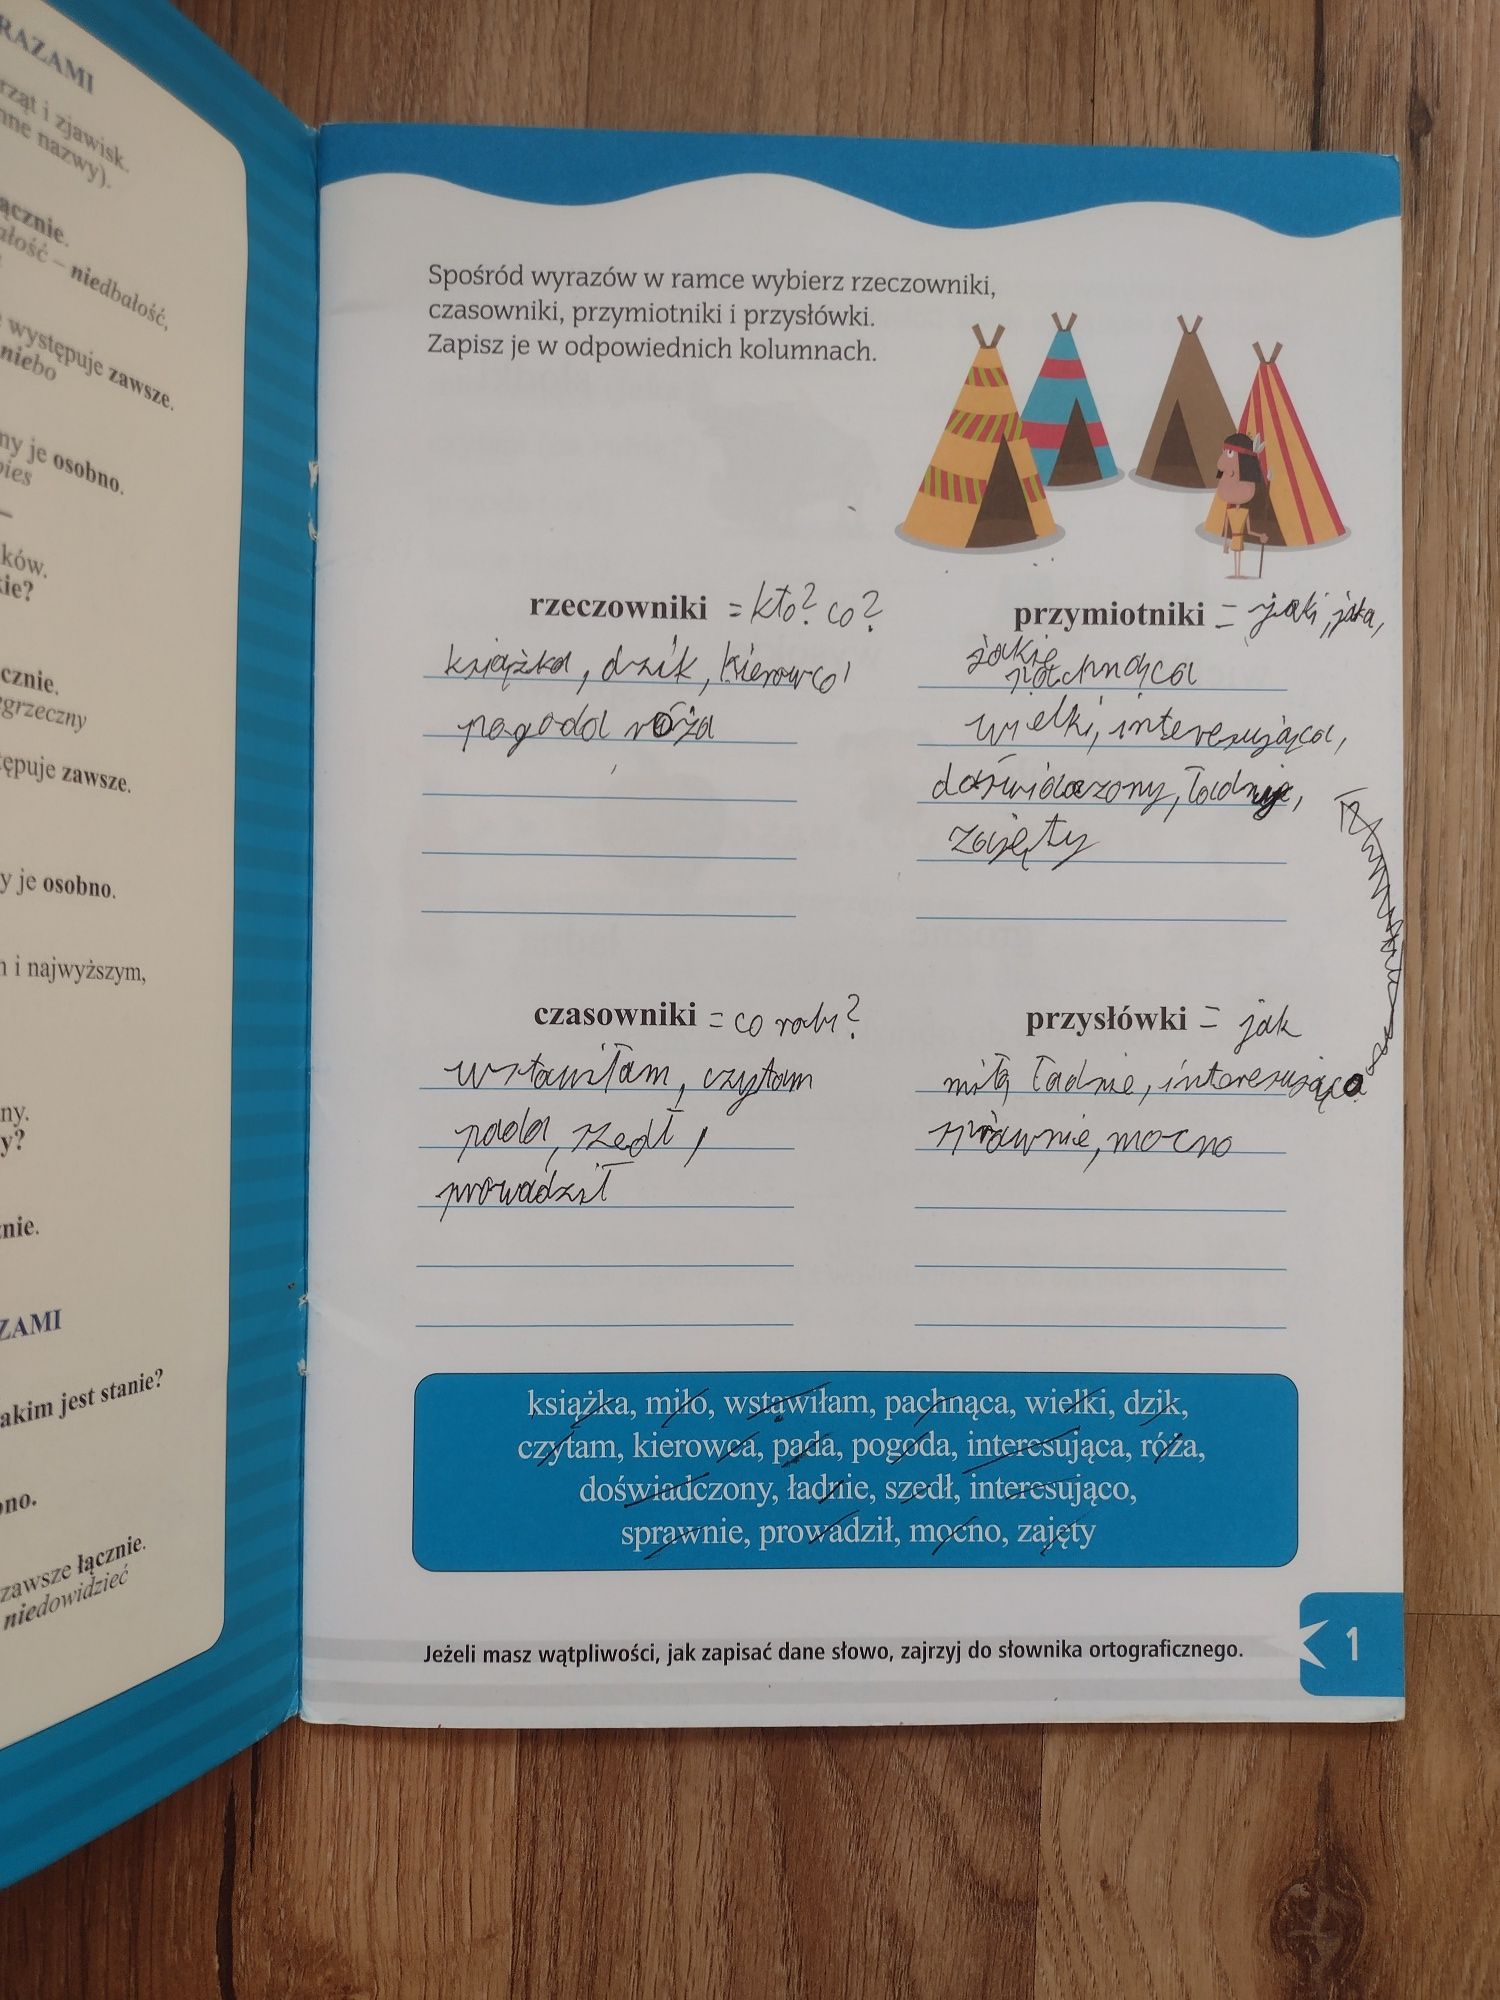 RAZAMI
rząt i zjawisk.
nne nazwy).
ącznie.
ałość – niedbałość,
występuje zawsze.
niebo
ny je osobno.
pies
ków.
kie?
cznie.
grzeczny
tępuje zawsze.
y je osobno.
i najwyższym,
ny.
y?
nie.
ZAMI
akim jest stanie?
ono.
zawsze łącznie.
niedowidzieć
Spośród wyrazów w ramce wybierz rzeczowniki,
czasowniki, przymiotniki i przysłówki.
Zapisz je w odpowiednich kolumnach.
rzeczowniki = kto? co?
książka, dzik, kierowca
pogoda róża
przymiotniki = jaki, jaka,
jakie
pachnąca
wielki, interesująca,
doświadczony, ładnie,
zajęty
czasowniki = co robi?
wstawiłam, czytam
pada, szedł,
prowadził
przysłówki = jak
ładnie, interesująco
sprawnie, mocno
książka, miło, wstawiłam, pachnąca, wielki, dzik,
czytam, kierowca, pada, pogoda, interesująca, róża,
doświadczony, ładnie, szedł, interesująco,
sprawnie, prowadził, mocno, zajęty
Jeżeli masz wątpliwości, jak zapisać dane słowo, zajrzyj do słownika ortograficznego.
1